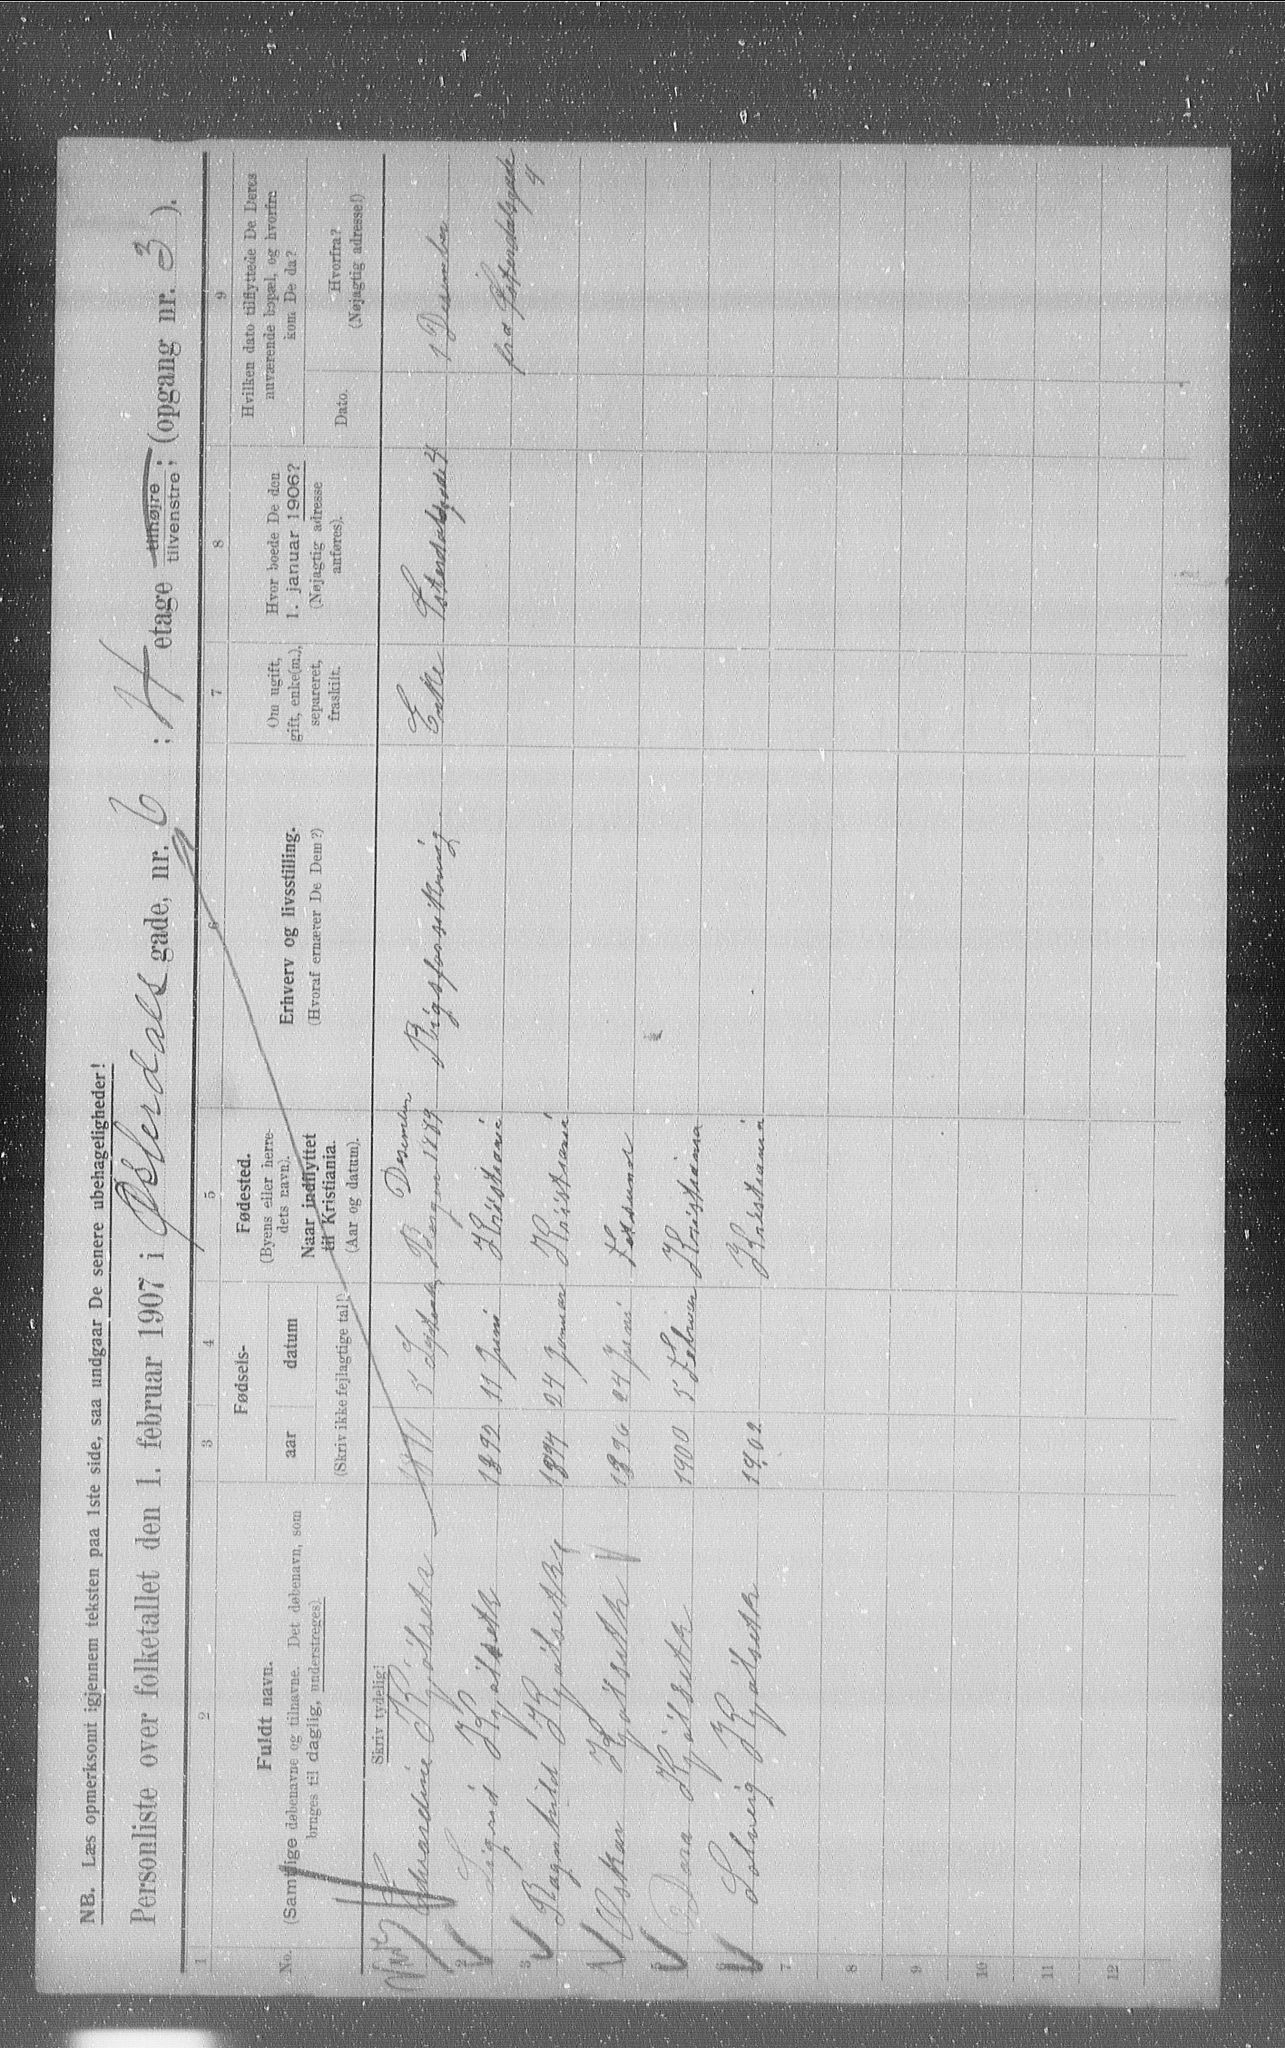 NB. Læs opmerksomt igjennem teksten paa 1ste side, saa undgaar De senere ubehageligheder!
Personliste over folketallet den 1. februar 1907 i Østerdals gade, nr. 6 ; 4 etage tilhøjre; tilvenstre; (opgang nr. 3 ).
1 2 3 4 5 6 7 8 9
No.
Fuldt navn.
(Samtlige døbenavne og tilnavne. Det døbenavn, som
bruges til daglig, understreges).
Fødsels-
aar datum
(Skriv ikke fejlagtige tal!)
Fødested.
(Byens eller herre-
dets navn).
Naar indflyttet
til Kristiania.
(Aar og datum).
Erhverv og livsstilling.
(Hvoraf ernærer De Dem?)
Om ugift,
gift, enke(m.),
separeret,
fraskilt.
Hvor boede De den
1. januar 1906?
(Nøjagtig adresse
anføres).
Hvilken dato tilflyttede De Deres
nuværende bopæl, og hvorfra
kom De da?
Dato.
Hvorfra?
(Nøjagtig adresse!)
Skriv tydelig!
Edvardine Kjølseth Bergen Desember Enke Østerdalsgade 4 1 Desember
2 Sigrid Kjølseth 1892 11 Juni Kristiania fra Østerdalsgade 4
3 Ragnhild Kjølseth 1894 24 Januar Kristiania
4 Oskar Kjølseth 1896 24 Juni
5 Dora Kjølseth 1900 5 Februar Kristiania
6 Solveig Kjølseth 1902 Kristiania
7
8
9
10
11
12